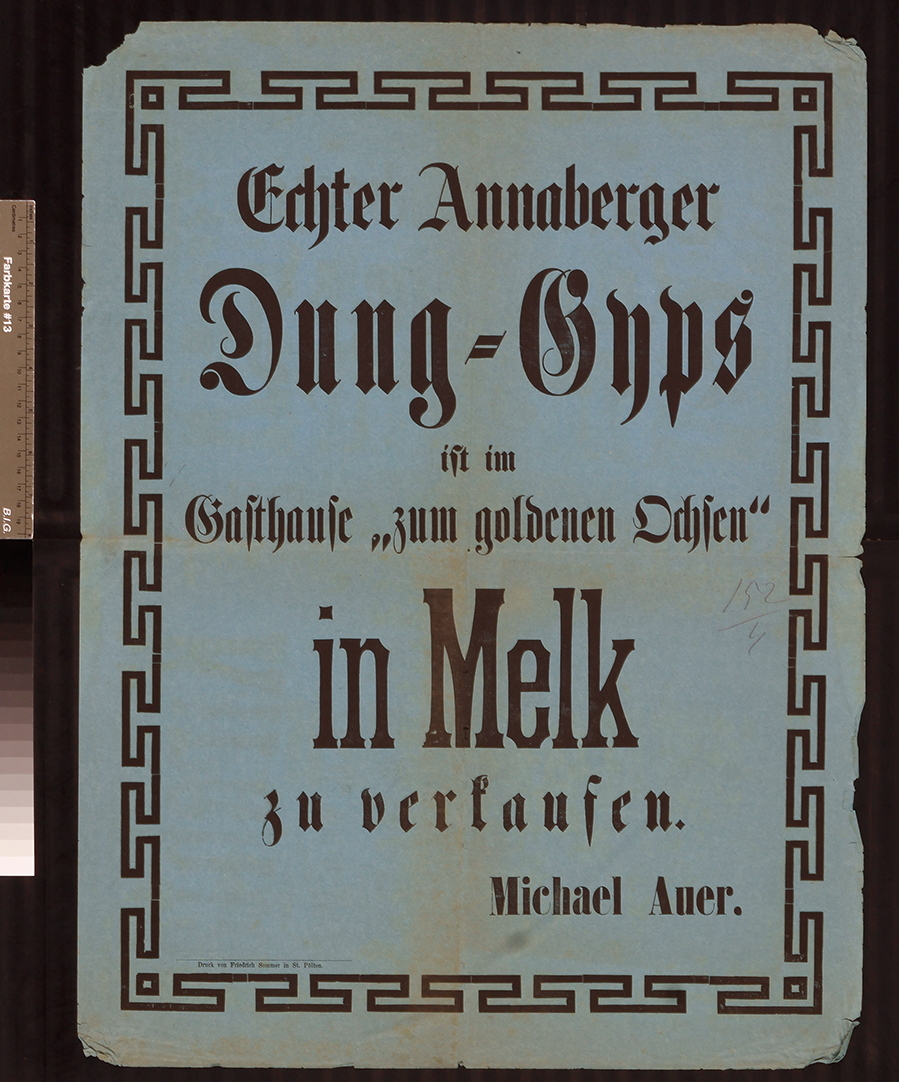 Echter Annaberger
Dung-Gyps
ist im
Gasthause „zum goldenen Ochsen“
in Melk
zu verkaufen.
Michael Auer.
Druck von Friedrich Sommer in St. Pölten.
152
4
Farbkarte #13
B.I.G.